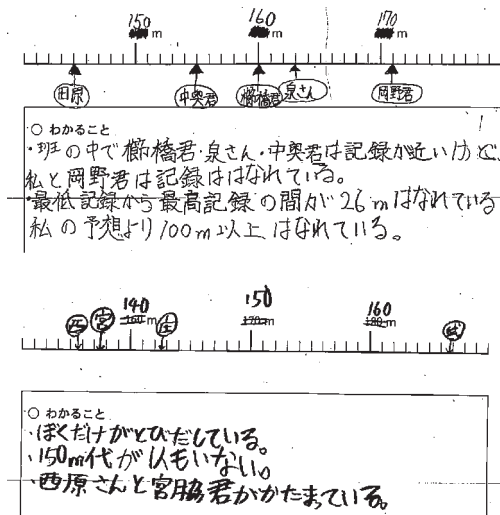 150 m 160 m 170 m
田原 中奥君 櫛橋君 泉さん 岡野君
○ わかること
・班の中で櫛橋君・泉さん・中奥君は記録が近いけど、
私と岡野君は記録ははなれている。
・最低記録から最高記録の間が26mはなれている
私の予想より100m以上はなれている。
140 150 160
m 170m 180m
西 宮 庄
○ わかること
・ぼくだけがとびだしている。
・150m代が1人もいない。
・西原さんと宮脇君がかたまっている。